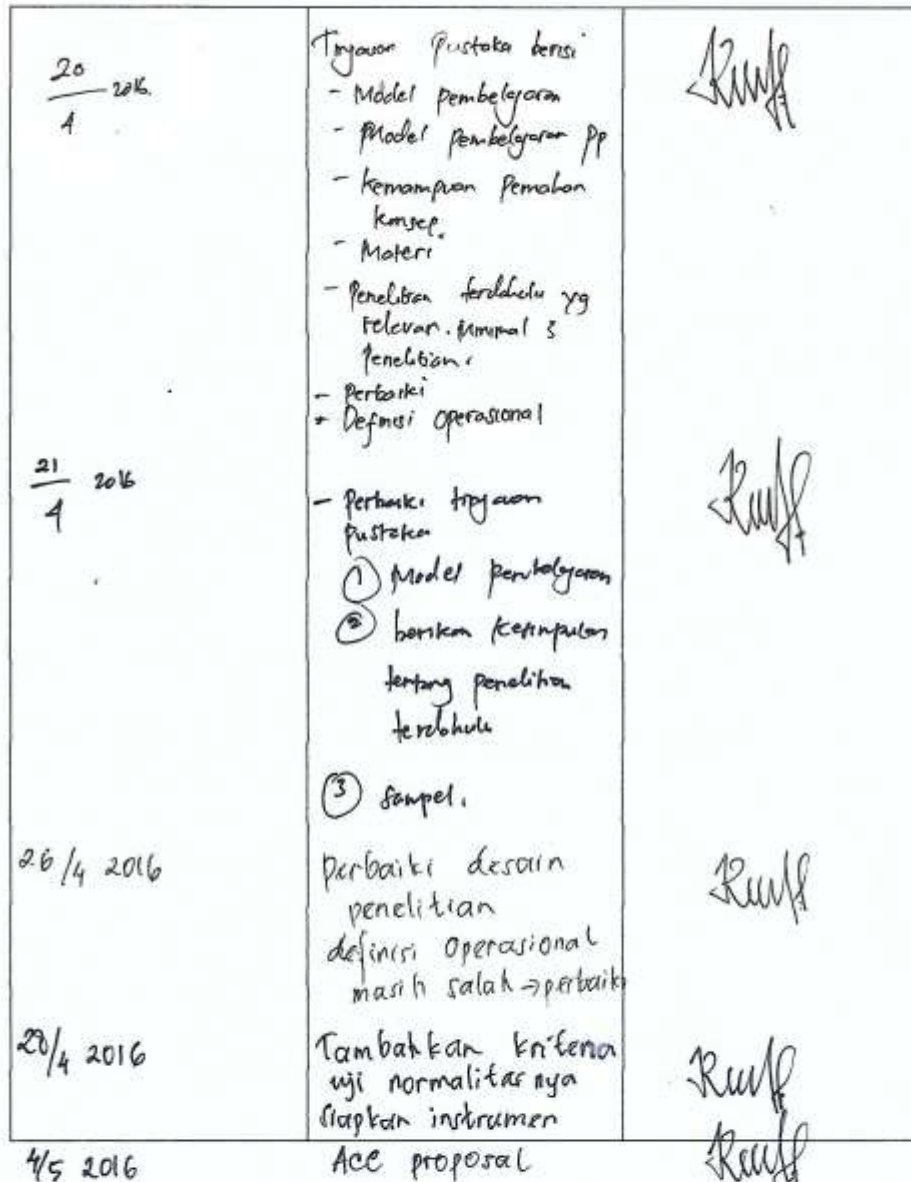 20/4 2016.
Tinjauan Pustaka berisi
- Model pembelajaran
- Model pembelajaran PP
- kemampuan Pemahan
konsep.
- Materi
- Penelitian terdahulu yg
relevan. minimal 3
Penelitian.
- Perbaiki
- Definisi Operasional
21/4 2016
- Perbaiki tinjauan
pustaka
① Model pembelajaran
② berikan kesimpulan
tentang penelitian
terdahulu
③ Sampel.
26/4 2016
Perbaiki desain
penelitian
definisi Operasional
masih salah → perbaiki
28/4 2016
Tambahkan kriteria
uji normalitasnya
siapkan instrumen
4/5 2016
Acc proposal